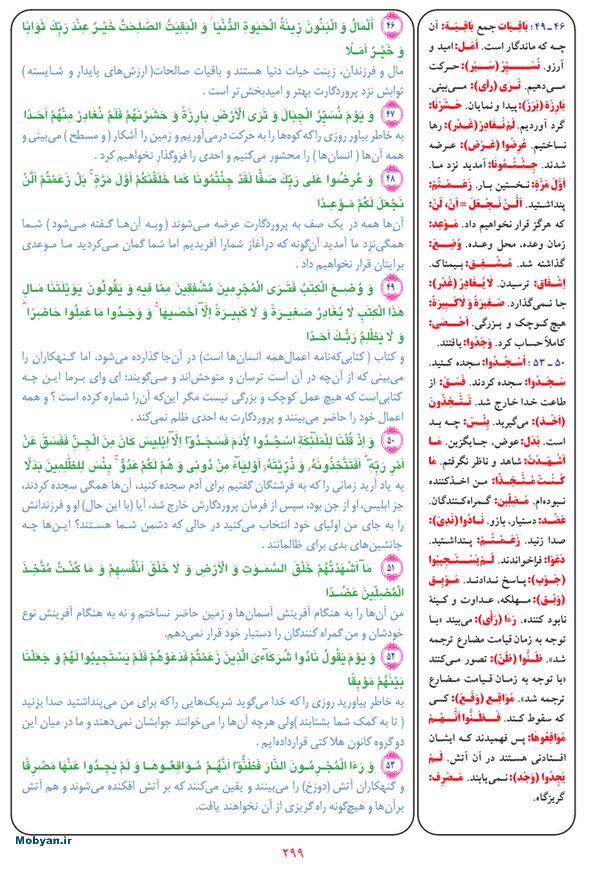 ۴۶
اَلْمالُ وَ الْبَنُونَ زِينَةُ الْحَيٰوةِ الدُّنْيا وَ الْبٰقِيٰتُ الصّٰلِحٰتُ خَيْرٌ عِنْدَ رَبِّكَ ثَوابًا
وَ خَيْرٌ اَمَلًا
مال و فرزندان، زینت حیات دنیا هستند و باقیات صالحات( ارزش‌های پایدار و شایسته )
ثوابش نزد پروردگارت بهتر و امیدبخش‌تر است .
۴۷
وَ يَوْمَ نُسَيِّرُ الْجِبالَ وَ تَرَى الْاَرْضَ بارِزَةً وَ حَشَرْنٰهُمْ فَلَمْ نُغادِرْ مِنْهُمْ اَحَدًا
به خاطر بیاور روزی را که کوه‌ها را به حرکت درمی‌آوریم و زمین را آشکار ( و مسطح ) می‌بینی و
همه آن‌ها ( انسان‌ها ) را محشور می‌کنیم و احدی را فروگذار نخواهیم کرد .
۴۸
وَ عُرِضُوا عَلٰى رَبِّكَ صَفًّا لَقَدْ جِئْتُمُونا كَما خَلَقْنٰكُمْ اَوَّلَ مَرَّةٍ ۚ بَلْ زَعَمْتُمْ اَلَّنْ
نَجْعَلَ لَكُمْ مَوْعِدًا
آن‌ها همه در یک صف به پروردگارت عرضه می‌شوند ( وبه آن‌ها گفته می‌شود ) شما
همگی‌نزد ما آمدید آن‌گونه که درآغاز شمارا آفریدیم اما شما گمان می‌کردید ما موعدی
برایتان قرار نخواهیم داد .
۴۹
وَ وُضِعَ الْكِتٰبُ فَتَرَى الْمُجْرِمِينَ مُشْفِقِينَ مِمّا فِيهِ وَ يَقُولُونَ يٰوَيْلَتَنا مالِ
هٰذَا الْكِتٰبِ لا يُغادِرُ صَغِيرَةً وَ لا كَبِيرَةً اِلّا اَحْصٰيها ۚ وَ وَجَدُوا ما عَمِلُوا حاضِرًا ۗ
وَ لا يَظْلِمُ رَبُّكَ اَحَدًا
و کتاب ( کتابی‌که‌نامه اعمال‌همه انسان‌ها است) در آن‌جا گذارده می‌شود، اما گنهکاران را
می‌بینی که از آن‌چه در آن است ترسان و متوحش‌اند و می‌گویند: ای وای برما این چه
کتابی‌است که هیچ عمل کوچک و بزرگی نیست مگر این‌که آن‌را شماره کرده است ؟ و همه
اعمال خود را حاضر می‌بینند و پروردگارت به احدی ظلم نمی‌کند .
۵۰
وَ اِذْ قُلْنا لِلْمَلٰئِكَةِ اسْجُدُوا لِاٰدَمَ فَسَجَدُوا اِلّا اِبْلِيسَ كانَ مِنَ الْجِنِّ فَفَسَقَ عَنْ
اَمْرِ رَبِّهِ ۗ اَفَتَتَّخِذُونَهُ وَ ذُرِّيَّتَهُ اَوْلِياءَ مِنْ دُونِي وَ هُمْ لَكُمْ عَدُوٌّ ۚ بِئْسَ لِلظّٰلِمِينَ بَدَلًا
به یاد آرید زمانی را که به فرشتگان گفتیم برای آدم سجده کنید، آن‌ها همگی سجده کردند،
جز ابلیس، او از جن بود، سپس از فرمان پروردگارش خارج شد، آیا (با این حال) او و فرزندانش
را به جای من اولیای خود انتخاب می‌کنید در حالی که دشمن شما هستند؟ این‌ها چه
جانشین‌های بدی برای ظالمانند .
۵۱
ما اَشْهَدْتُهُمْ خَلْقَ السَّمٰوٰتِ وَ الْاَرْضِ وَ لا خَلْقَ اَنْفُسِهِمْ وَ ما كُنْتُ مُتَّخِذَ
الْمُضِلِّينَ عَضُدًا
من آن‌ها را به هنگام آفرینش آسمان‌ها و زمین حاضر نساختم و نه به هنگام آفرینش نوع
خودشان و من گمراه کنندگان را دستیار خود قرار نمی‌دهم.
۵۲
وَ يَوْمَ يَقُولُ نادُوا شُرَكاءِيَ الَّذِينَ زَعَمْتُمْ فَدَعَوْهُمْ فَلَمْ يَسْتَجِيبُوا لَهُمْ وَ جَعَلْنا
بَيْنَهُمْ مَوْبِقًا
به خاطر بیاورید روزی را که خدا می‌گوید شریک‌هایی راکه برای من می‌پنداشتید صدا بزنید
( تا به کمک شما بشتابند) ولی هرچه آن‌ها را می‌خوانند جوابشان نمی‌دهند و ما در میان این
دو گروه کانون هلاکتی قرارداده‌ایم .
۵۳
وَ رَءَا الْمُجْرِمُونَ النّارَ فَظَنُّوا اَنَّهُمْ مُواقِعُوها وَ لَمْ يَجِدُوا عَنْها مَصْرِفًا
و گنهکاران آتش (دوزخ) را می‌بینند و یقین می‌کنند که بر آتش افکنده می‌شوند و هم آتش
برآن‌ها و هیچ‌گونه راه گریزی از آن نخواهند یافت.
۴۶ ـ ۴۹: باقِيات جمع باقِيَة: آن
چه که ماندگار است. اَمَل: امید و
آرزو. نُسَيِّرُ (سَيْر): حرکت
می‌دهیم. تَرى (رأى): می‌بینی.
بارِزَة (بَرَزَ): پیدا و نمایان. حَشَرْنا:
گرد آوردیم. لَمْ نُغادِرْ (غَدْر): رها
نساختیم. عُرِضُوا (عَرْض): عرضه
شدند. جِئْتُمُونا: آمدید نزد ما.
اَوَّلَ مَرَّةٍ: نخستین بار. زَعَمْتُمْ:
پنداشتید. اَلَّنْ نَجْعَلَ = اَنْ، لَنْ:
که هرگز قرار نخواهیم داد. مَوْعِد:
زمان وعده، محل وعده. وُضِعَ:
گذاشته شد. مُشْفِق: بیمناک.
اِشْفاق: ترسیدن. لا يُغادِرُ (غَدْر):
جا نمی‌گذارد. صَغِيرَةً وَ لا كَبِيرَةً:
هیچ‌کوچک و بزرگی. اَحْصى:
کاملاً حساب کرد. وَجَدُوا: یافتند.
۵۰ ـ ۵۳ : اُسْجُدُوا: سجده کنید.
سَجَدُوا: سجده کردند. فَسَقَ: از
طاعت خدا خارج شد. تَتَّخِذُونَ
(اَخْذ): می‌گیرید. بِئْسَ: چه بد
است. بَدَل: عوض، جایگزین. ما
اَشْهَدْتُ: شاهد و ناظر نگرفتم. ما
كُنْتُ مُتَّخِذًا: من اخذکننده
نبوده‌ام. مُضِلِّين: گمراه‌کنندگان.
عَضُد: دستیار، بازو. نادُوا (نَدِىَ):
صدا زنید. زَعَمْتُمْ: پنداشتید.
دَعَوْا: فراخواندند. لَمْ يَسْتَجِيبُوا
(جَوْب): پاسخ ندادند. مَوْبِق
(وَبَق): مهلکه، عداوت و کینهٔ
نابود کننده. رَءَا (رَأى): می‌بیند «با
توجه به زمان قیامت مضارع ترجمه
شد». ظَنُّوا (ظَنّ): تصور می‌کنند
«با توجه به زمان قیامت مضارع
ترجمه شد». مُواقِع (وَقَعَ): کسی
که سقوط کند. فَظَنُّوا اَنَّهُمْ
مُواقِعُوها: پس فهمیدند که ایشان
افتادنی هستند در آن آتش. لَمْ
يَجِدُوا (وَجَد): نمی‌یابند. مَصْرِف:
گریزگاه.
Mobyan.ir
۲۹۹